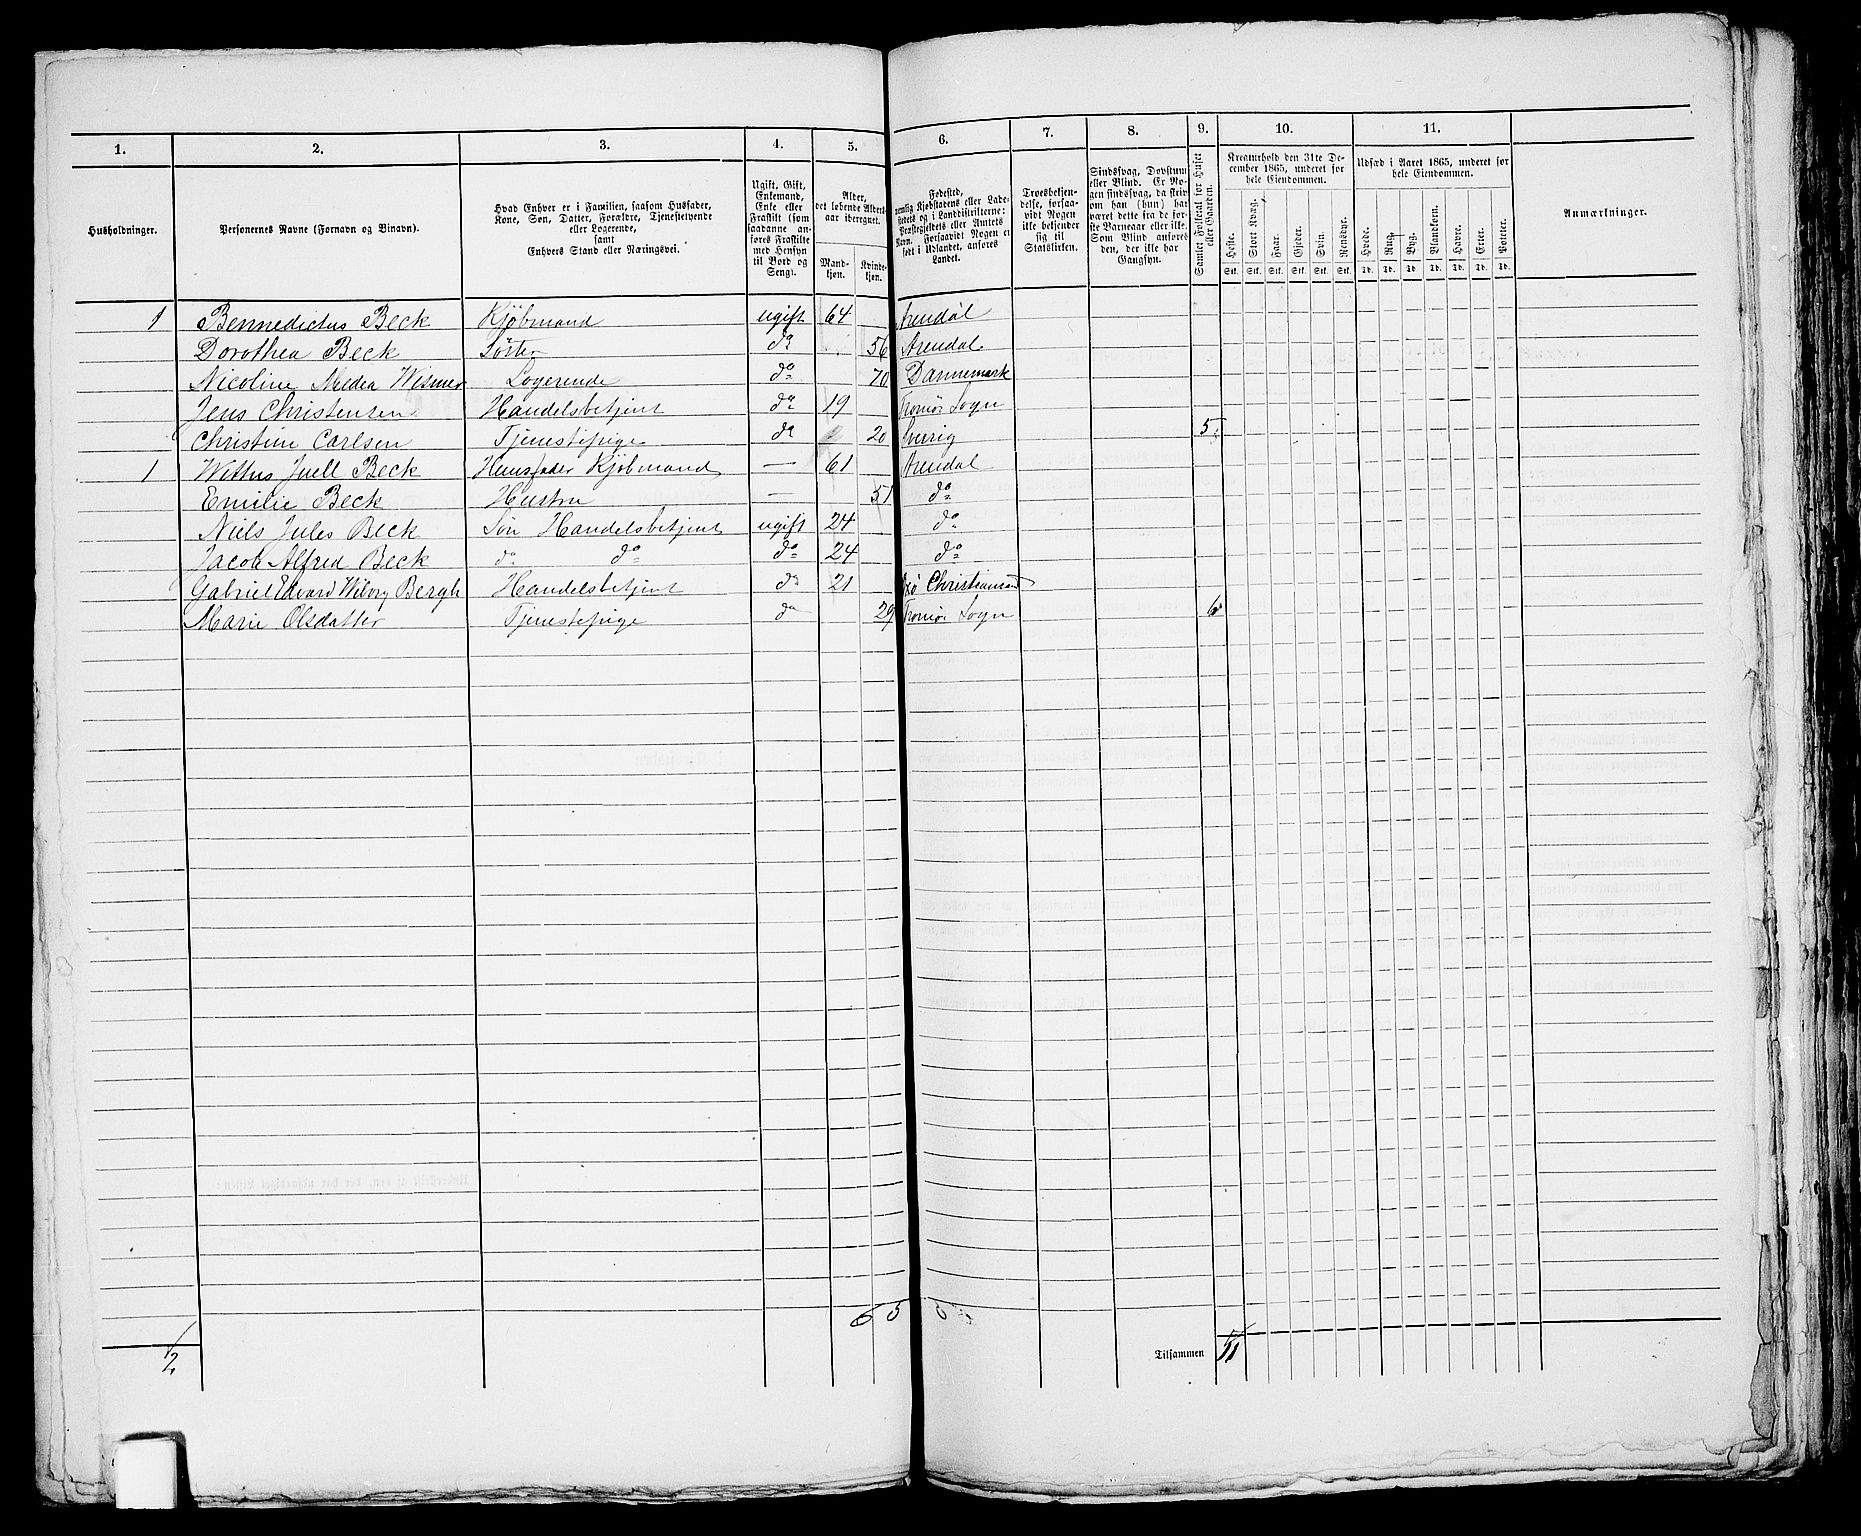 1. 2. 3. 4. 5. 6. 7. 8. 9. 10. 11.
Husholdninger.
Personernes Navne (Fornavn og Binavn).
Hvad Enhver er i Familien, saasom Husfader,
Kone, Søn, Datter, Forældre, Tjenestetyende
eller Logerende,
samt
Enhvers Stand eller Næringsvei.
Ugift, Gift,
Enkemand,
Enke eller
Fraskilt (som
saadanne an-
føres Fraskilte
med Hensyn
til Bord og
Seng).
Alder,
det løbende Alders-
aar iberegnet.
Mand-
kjøn.
Kvinde-
kjøn.
Fødested,
nemlig Kjøbstadens eller Lade-
stedets og i Landdistrikterne:
Præstegjeldets eller Amtets
Navn. Forsaavidt Nogen er
født i Udlandet, anføres
Landet.
Troesbekjen-
delse, forsaa-
vidt Nogen
ikke bekjender
sig til
Statskirken.
Sindssvag, Døvstum
eller Blind. Er No-
gen sindssvag, da skriv
om han (hun) har
været dette fra de før-
ste Barneaar eller ikke.
Som Blind anføres
den, der ikke har
Gangsyn.
Samlet Folketal for Huset
eller Gaarden.
Kreaturhold den 31te De-
cember 1865, underet for
hele Eiendommen.
Heste. Stort Kvæg. Faar. Gjeder. Svin. Rensdyr.
Stk. Stk. Stk. Stk. Stk. Stk.
Udsæd i Aaret 1865, underet for
hele Eiendommen.
Hvede. Rug. Byg. Blandkorn. Havre. Erter. Poteter.
Td. Td. Td. Td. Td. Td. Td.
Anmærkninger.
1 Bennedictus Beck Kjöbmand ugift 64 Arendal
Dorothea Beck Söster do 56 Arendal
Nicoline Medea Wismer Logerende do 70 Dannemark
Jens Christensen Handelsbetjent do 19 Tromöe Sogn
Christine Carlsen Tjenestepige do 20 Sverrig 5
1 Wittus Juell Beck Huusfader Kjöbmand — 61 Arendal
Emilie Beck Hustru — 51 do
Niels Jules Beck Sön Handelsbetjent ugift 24 do
Jacob Alfred Beck do do do 24 do
Gabriel Edvard Wiborg Bergh Handelsbetjent do 21 Christiansand
Marie Olsdatter Tjenestepige do 29 Tromöe Sogn 6
6 5
2 Tilsammen 11